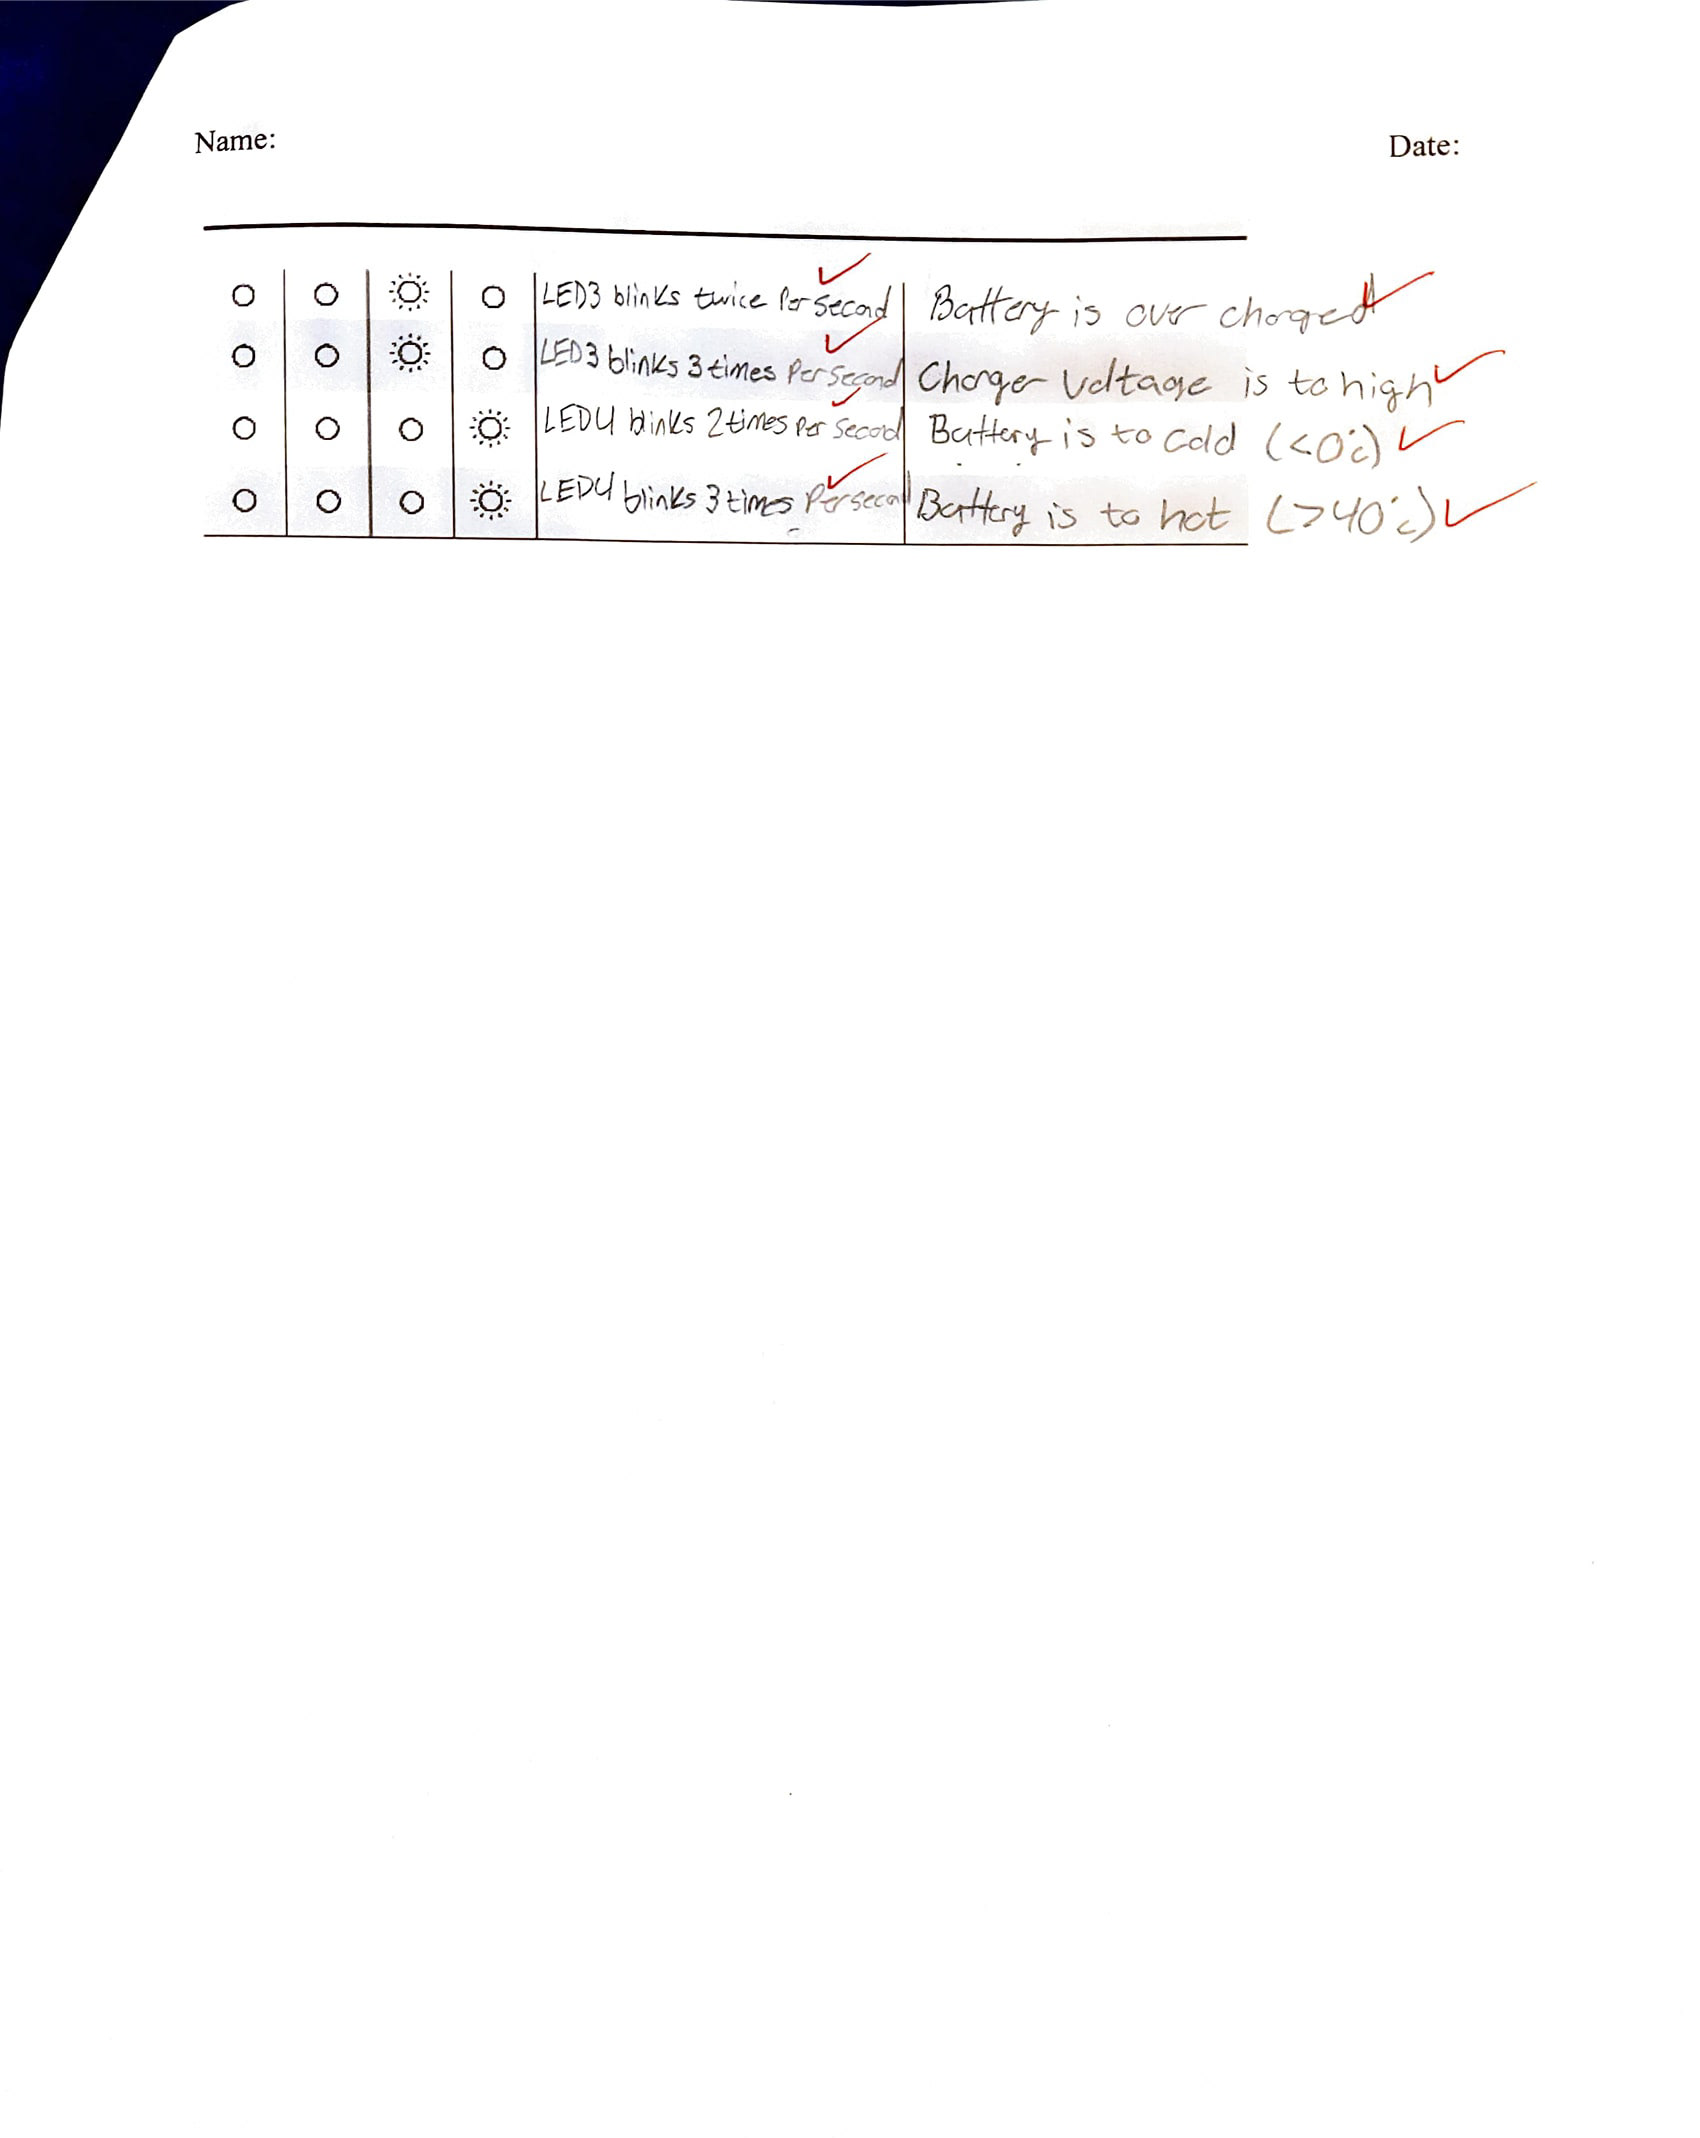 Name: Date:
LED3 blinks twice Per second Battery is over charged
LED3 blinks 3 times Per Second Charger Voltage is to high
LED4 blinks 2 times per second Battery is to cold (<0°c)
LED4 blinks 3 times Per second Battery is to hot (>40°c)